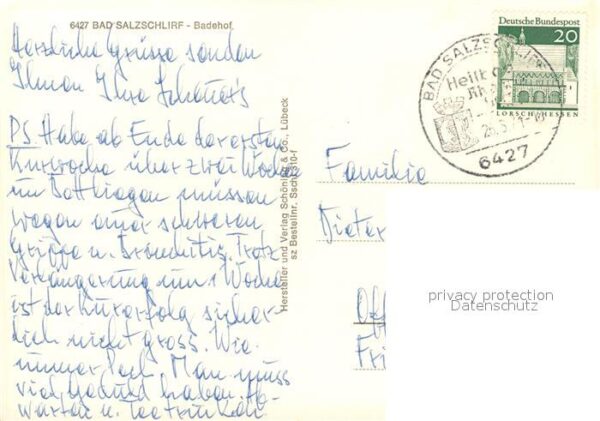 6427 BAD SALZSCHLIRF - Badehof
Herzliche Grüsse senden
Ihnen Ihre
PS Habe ab Ende der ersten
Kurwoche über zwei Wochen
im Bett liegen müssen
wegen einer schweren
Grippe u. Bronchitis. Trotz
Verlängerung um 1 Woche
ist der Kurerfolg sicher-
lich nicht gross. Wie
immer Pech. Man muss
viel Geduld haben. Ab-
warten u. Tee trinken
Hersteller und Verlag Schöning & Co., Lübeck
sz Bestellnr. Ssch
Deutsche Bundespost
20
LORSCH/HESSEN
BAD SALZSCHLIRF
Heilb
6427
Familie
Dieter
privacy protection
Datenschutz